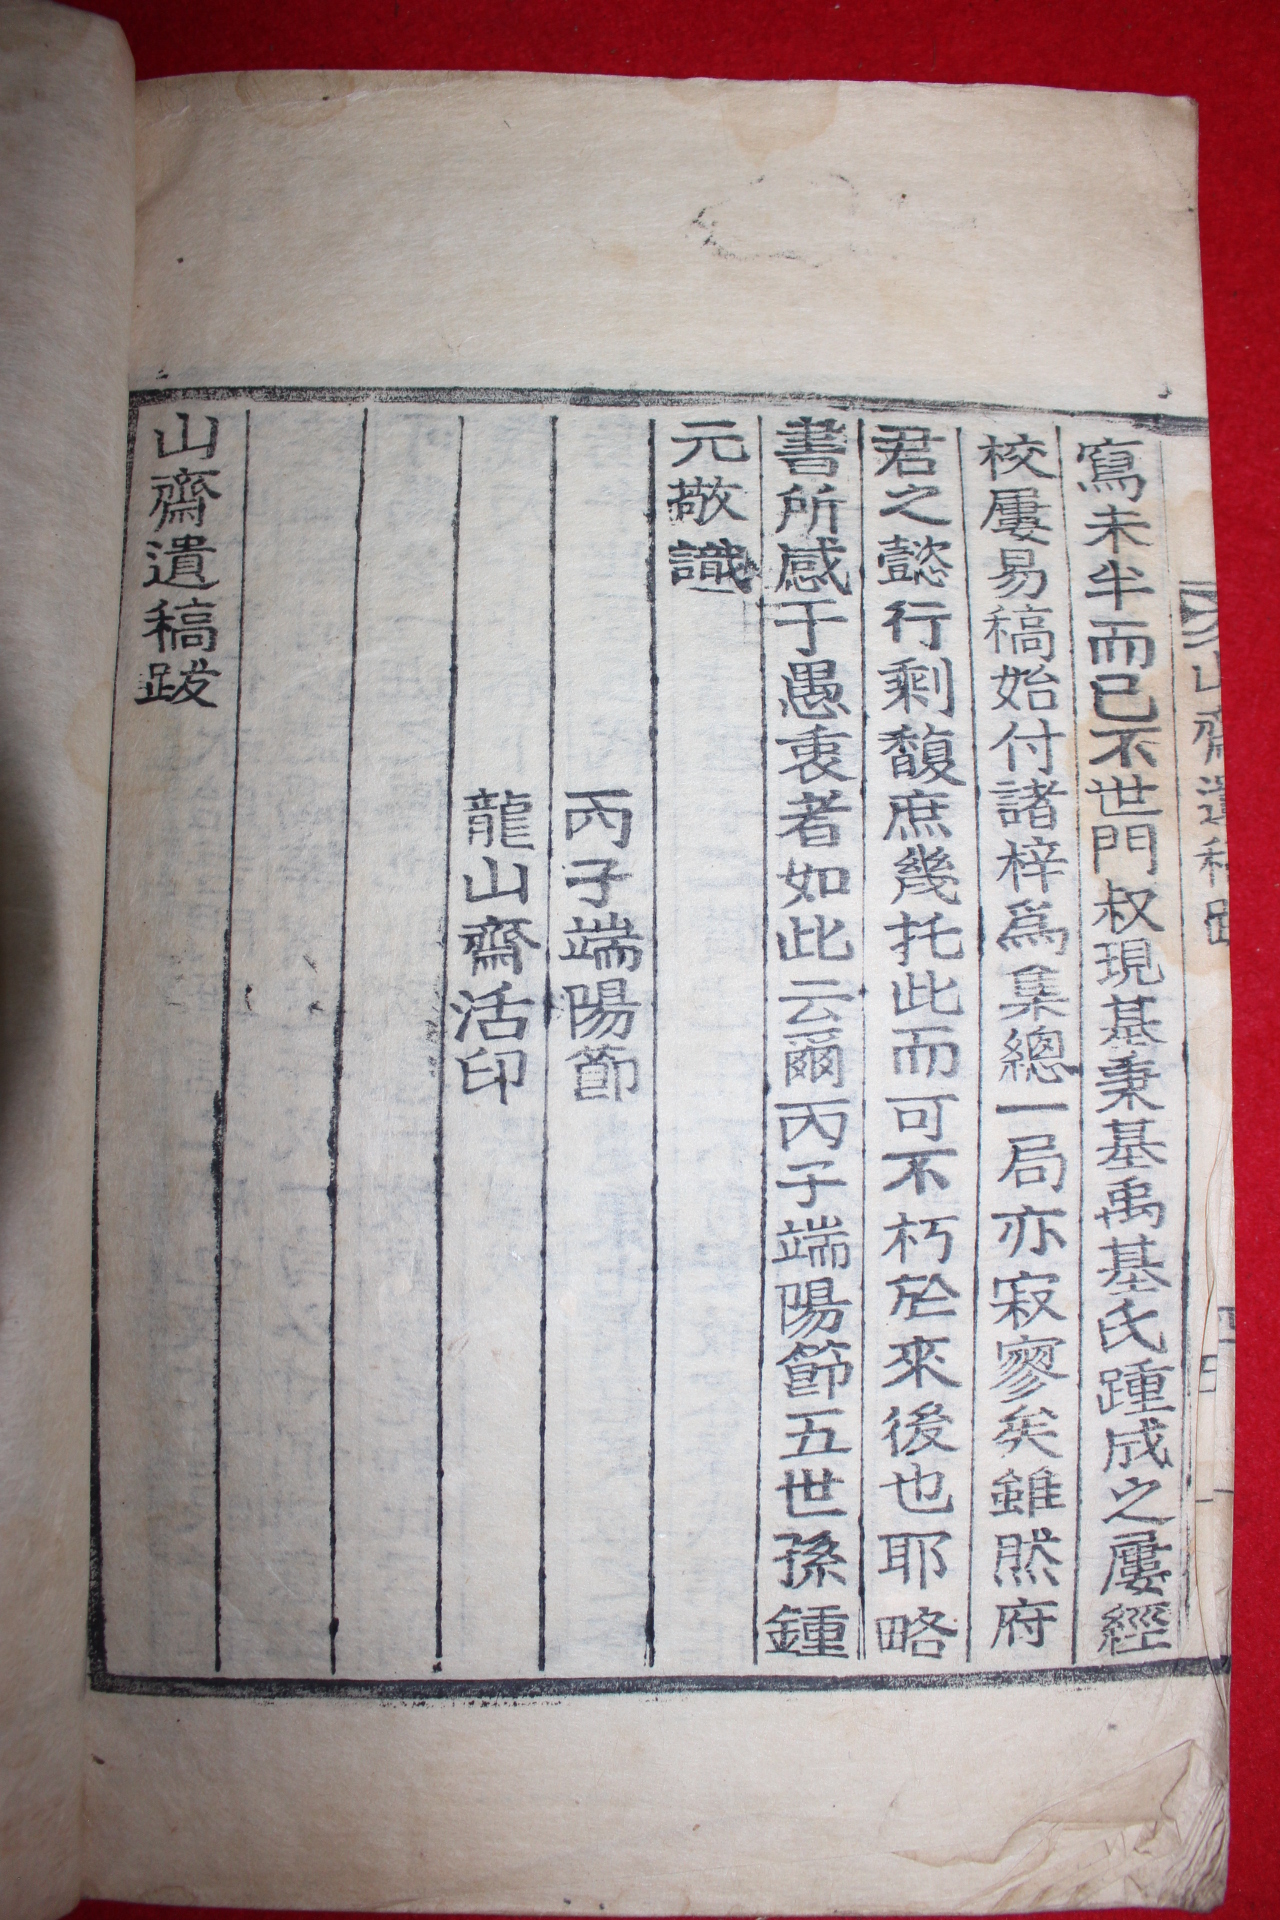 山齋遺稿跋
寫未半而已不世門叔現基秉基禹基氏踵成之屢經
校屢易稿始付諸梓爲集總一局亦寂寥矣雖然府
君之懿行剩馥庶幾托此而可不朽於來後也耶略
書所感于愚衷者如此云爾丙子端陽節五世孫鍾
元敬識
丙子端陽節
龍山齋活印
山齋遺稿跋